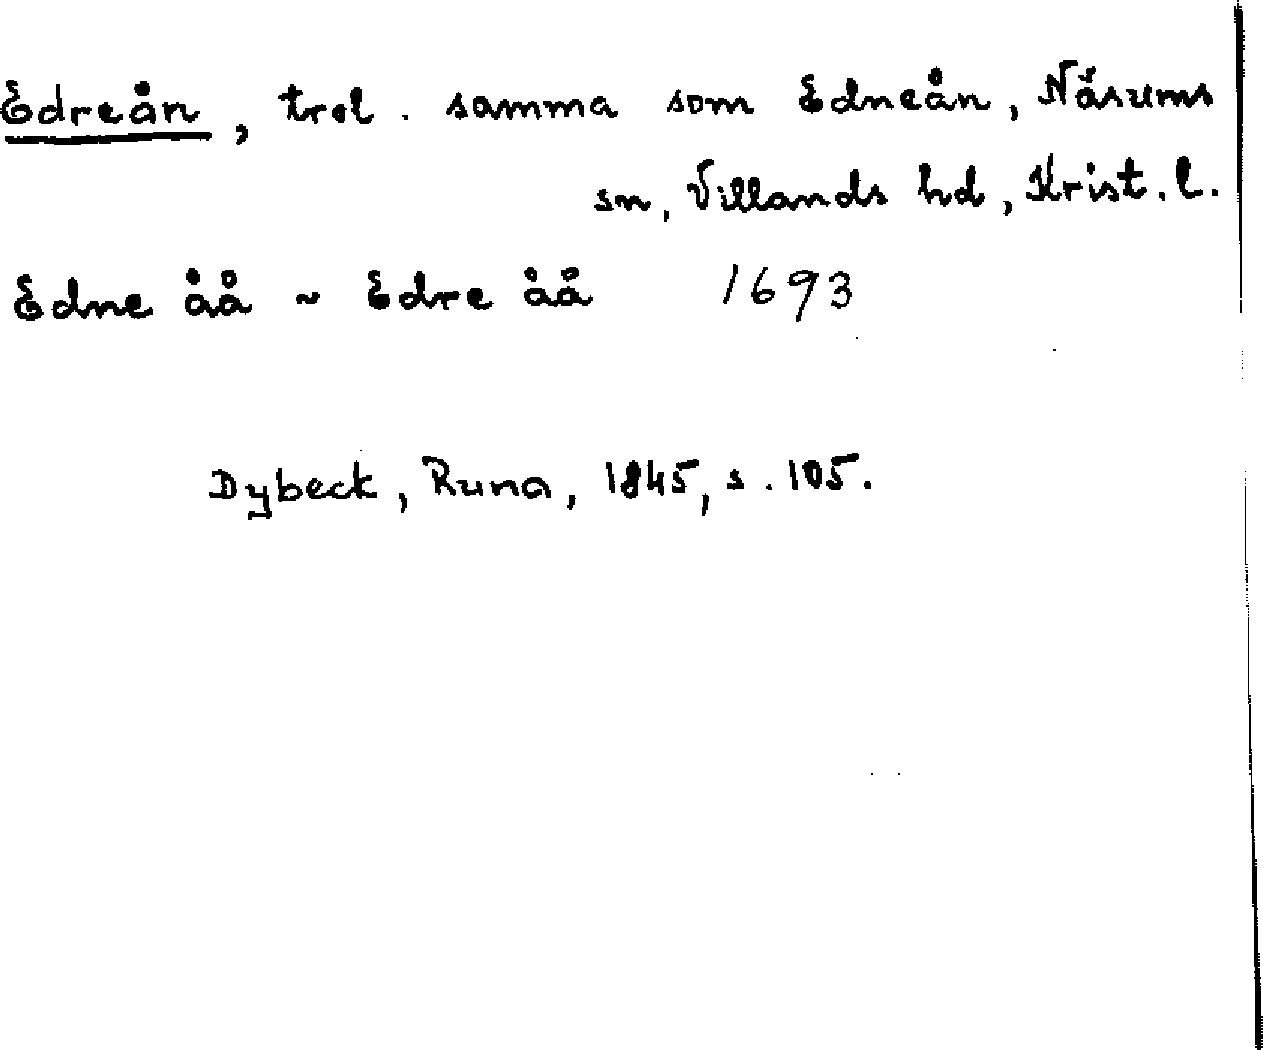 Edreån, trol. samma som Edneån, Näsums
sn, Villands hd, Krist. l.
Edne åå ~ Edre åå 1693
Dybeck, Runa, 1845, s. 105.